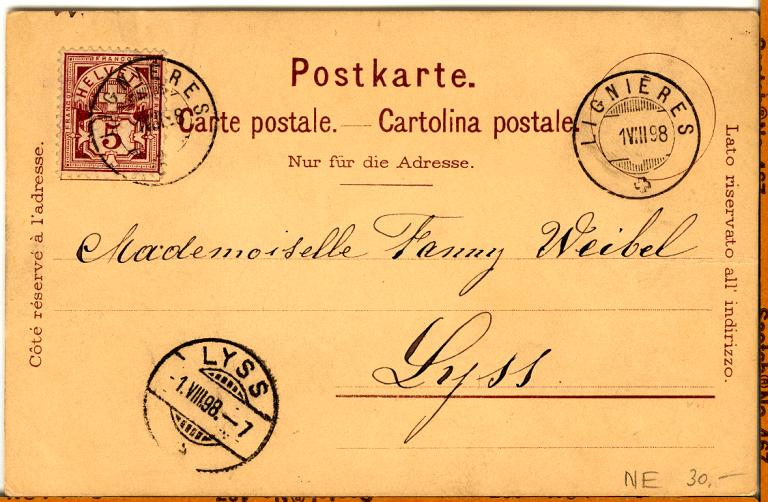 FRANCO
HELVETIA
FRANCO
5
FRANCO
Postkarte.
Carte postale. — Cartolina postale.
Nur für die Adresse.
LIGNIÈRES
1 VIII 98
Côté réservé à l'adresse.
Lato riservato all' indirizzo.
Mademoiselle Fanny Weibel
Lyss
LYSS
-1.VIII.98.-7
NE 30.-